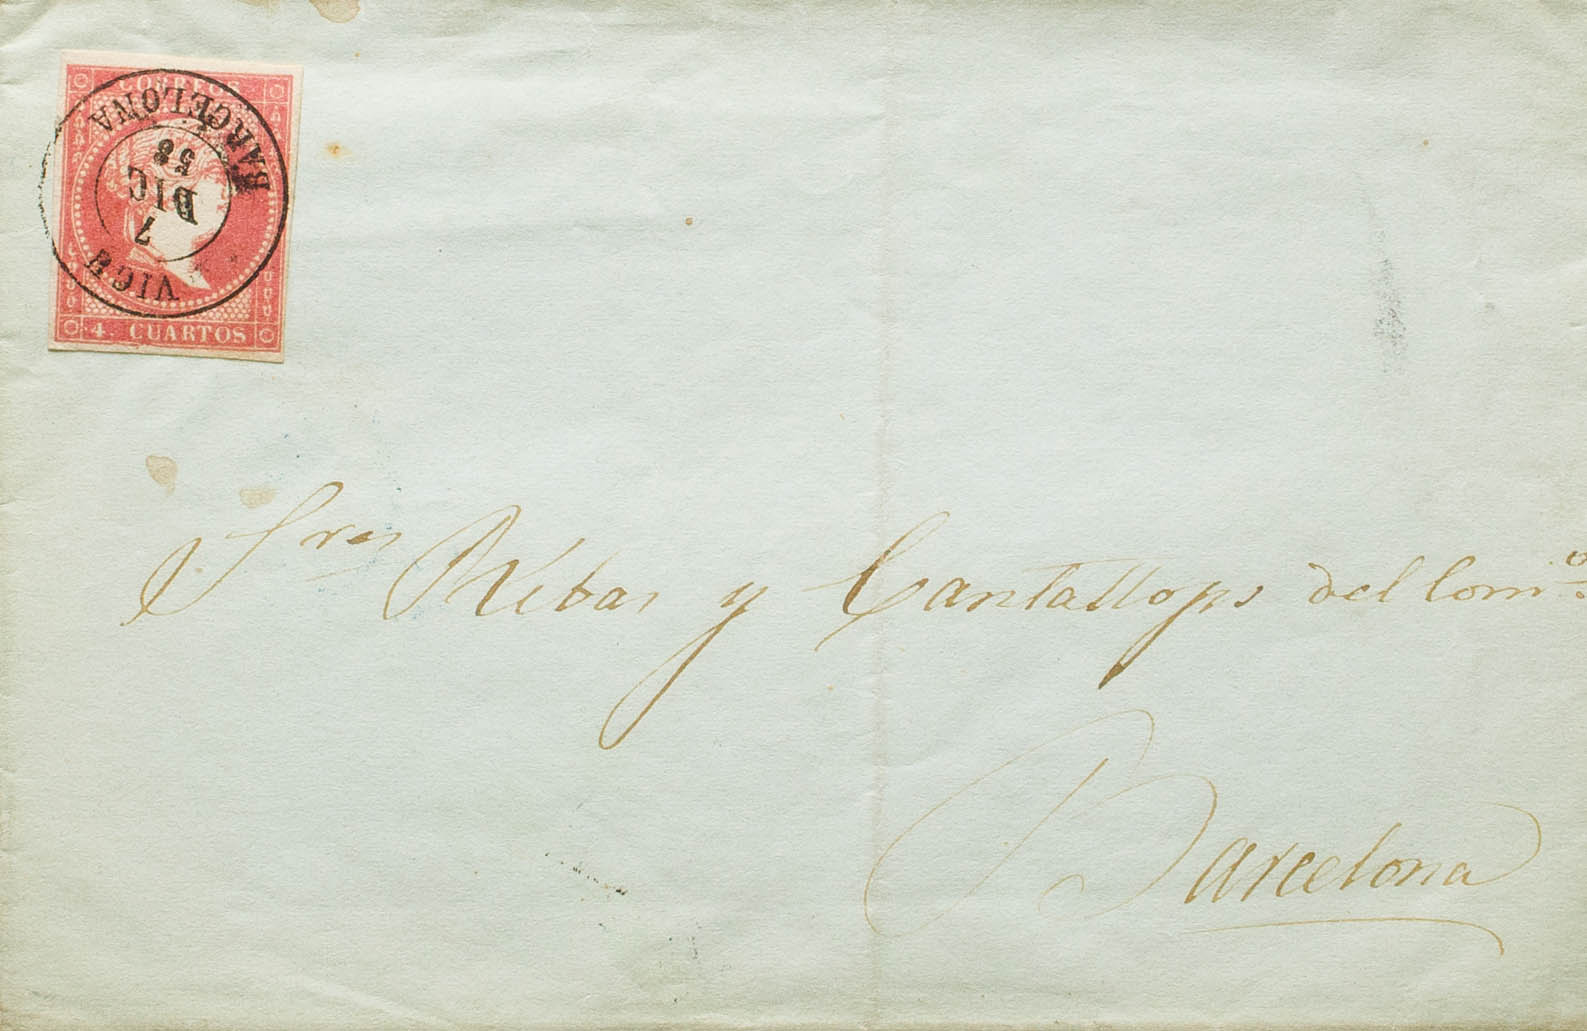 CORREOS
VICH
7
DIC
58
BARCELONA
4. CUARTOS
Sres Ribas y Cantallops del Comº
Barcelona